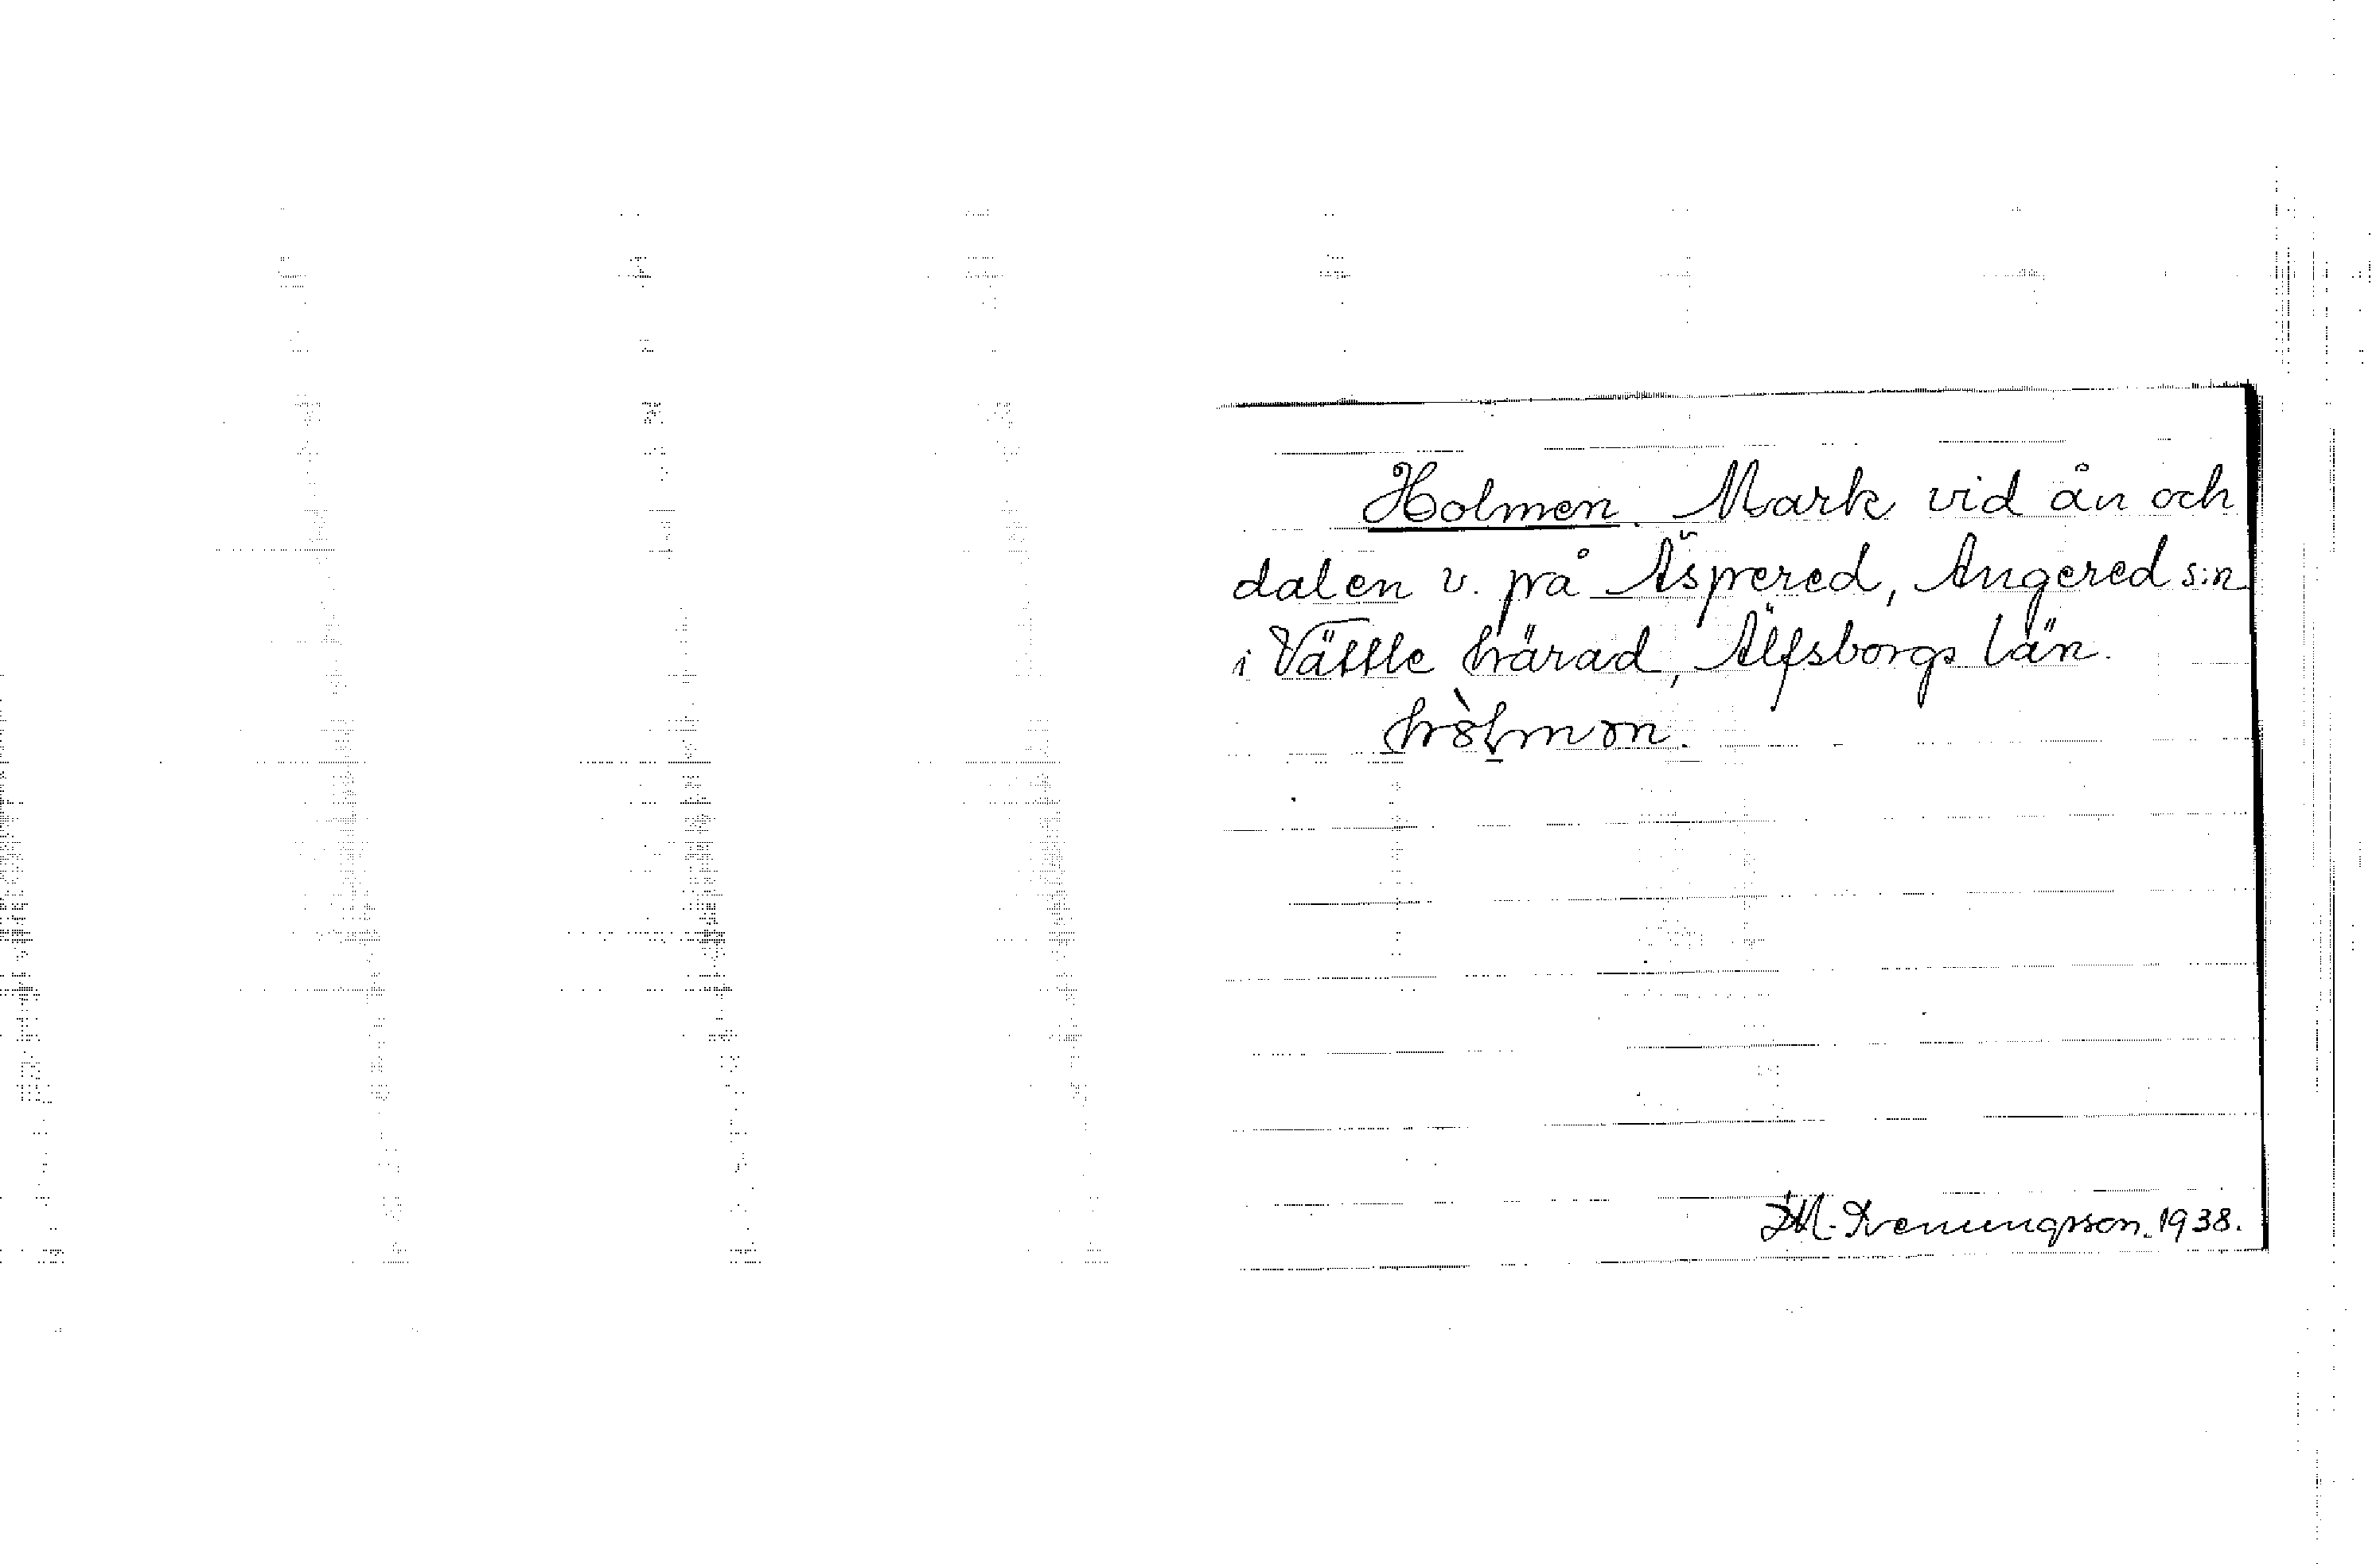 Holmen. Mark vid ån och
dalen v. på Äspered, Angered s:n
i Vättle härad, Älfsborgs län.
hòlmɔn.
1938.